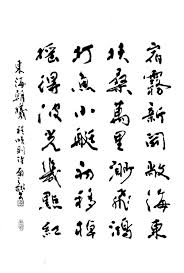 宿霧新開敞海東
扶桑萬里渺飛鴻
打魚小艇初移棹
搖得波光幾點紅
東海朝曦 程順則詩